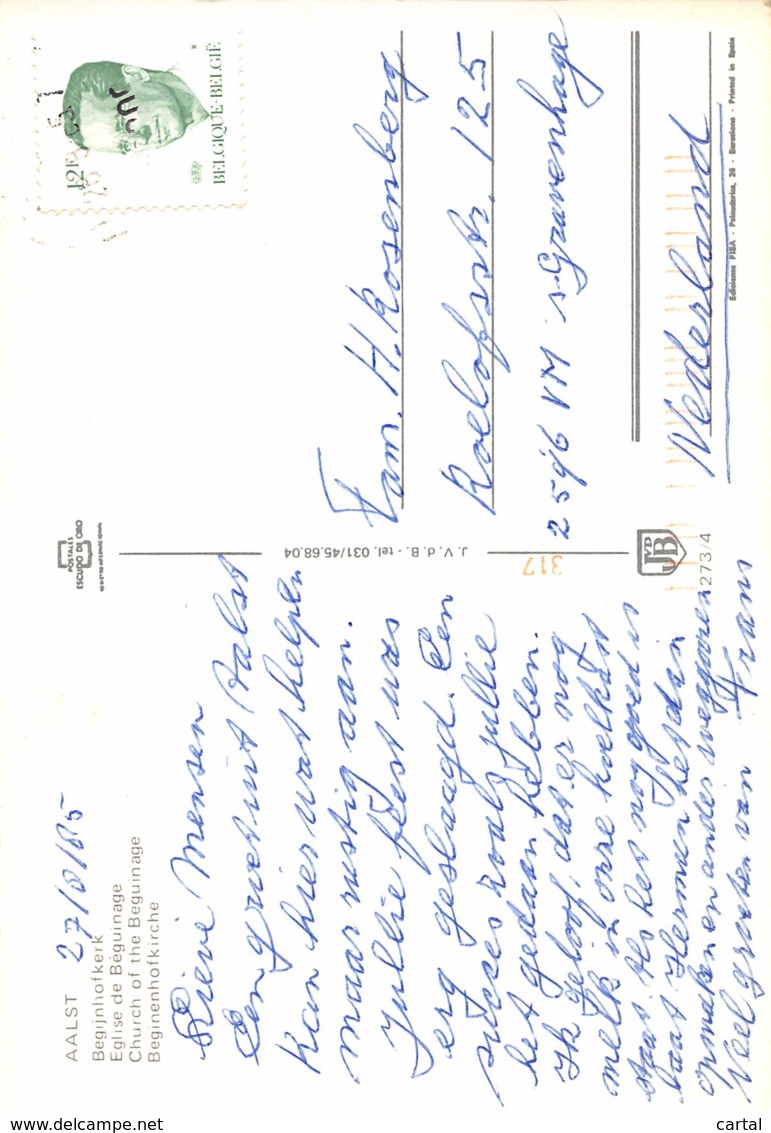 AALST 27/8/85
Begijnhofkerk
Eglise de Béguinage
Church of the Beguinage
Beginenhofkirche
Lieve Mensen
Een groet uit Aalst
Kan hier wat helpen
maar rustig aan.
Jullie feest was
erg geslaagd. Een
succes zoals jullie
het gedaan hebben.
Ik geloof, dat er nog
melk in onze koelkast
staat. Als het nog goed is
laat Herman het dan
opmaken en anders weggooien
Veel groeten van Frans
POSTALES
ESCUDO DE ORO
J. V. d. B. - tel. 031/45.68.04
317
JVDB
273/4
12F
BELGIQUE-BELGIË
Fam. H. Rosenberg
Roelofsstr. 125
2596 VM s-Gravenhage
Nederland
Ediciones FISA - Palaudarias, 26 - Barcelona - Printed in Spain
cartal
www.delcampe.net